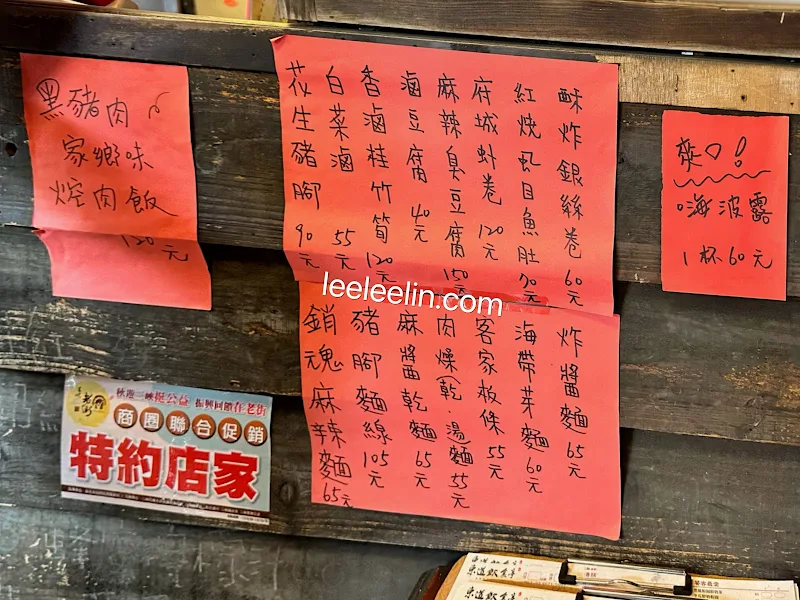 黑豬肉
家鄉味
焢肉飯
120元
酥炸銀絲卷 60元
紅燒虱目魚肚 90元
府城蚵卷 120元
麻辣臭豆腐 150元
滷豆腐 40元
香滷桂竹筍 120元
白菜滷 55元
花生豬腳 90元
leeleelin.com
炸醬麵 65元
海帶芽麵 60元
客家板條 55元
肉燥(乾.湯)麵 55元
麻醬乾麵 65元
豬腳麵線 105元
銷魂麻辣麵 65元
嗨波露
1杯60元
秋遊三峽挺公益 振興回饋在老街
商圈聯合促銷
特約店家